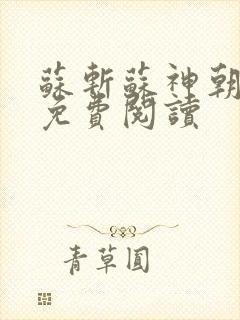 蘇斬蘇神朝
免費閱讀
青草圓